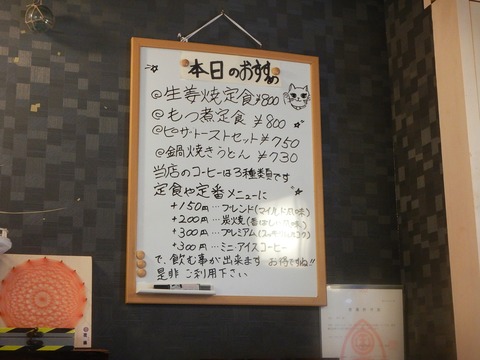 本日のおすすめ
@生姜焼定食 ¥800
@もつ煮定食 ¥800
@ピザトーストセット ¥750
@鍋焼きうどん ¥730
当店のコーヒーは3種類です
定食や定番メニューに
+150円…ブレンド(マイルド風味)
+200円…炭焼(香ばしい風味)
+300円…プレミアム
+300円…ミニ・アイスコーヒー
で、飲む事が出来ます お得ですね!!
是非ご利用下さい